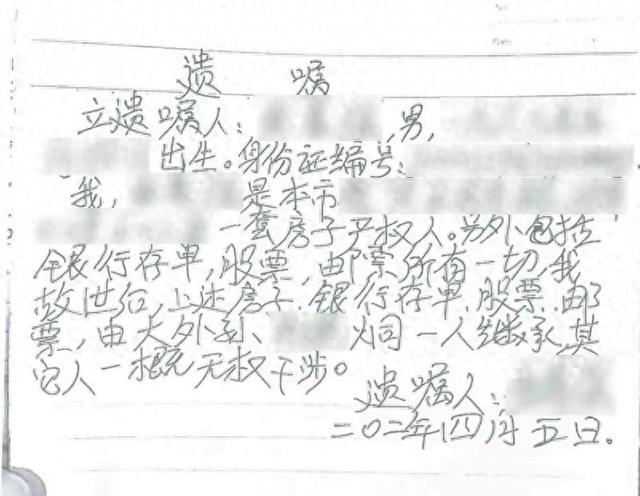 遗 嘱
立遗嘱人: 男,
出生。身份证编号:
我, 是本市
一套房子产权人。另外包括
银行存单,股票,邮票所有一切,我
故世后,上述房子.银行存单.股票.邮
票,由大外孙、 炯一人继承,其
它人一概无权干涉。
遗嘱人:
二〇二年四月五日。